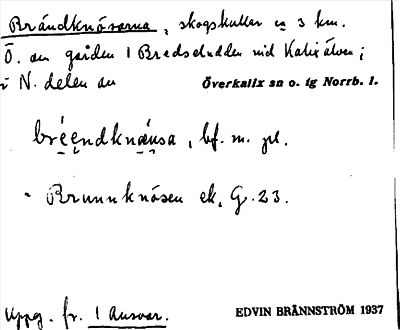 Brändknösarna, skogskullar ca 3 km.
Ö. om gården 1 Bredsludden vid Kalixälven;
i N. delen av Överkalix sn o. tg Norrb. l.
bréendknäusa, bf. m. pl.
Brunnknösen ek. G. 23.
Uppg. fr. 1 Ansvar.
EDVIN BRÄNNSTRÖM 1937